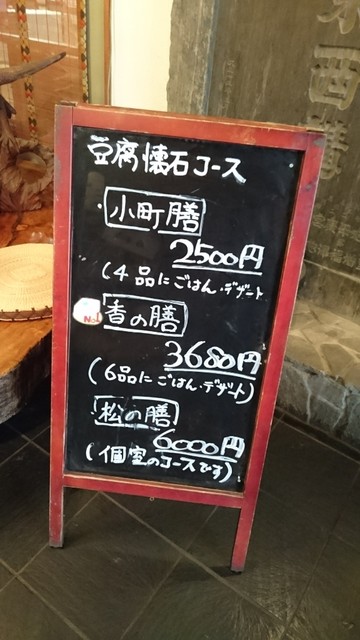 豆腐懐石コース
・小町膳
2500円
(4品にごはん・デザート
No.1
香の膳
3680円
(6品にごはん・デザート)
松の膳
6000円
(個室のコースです)
西陣